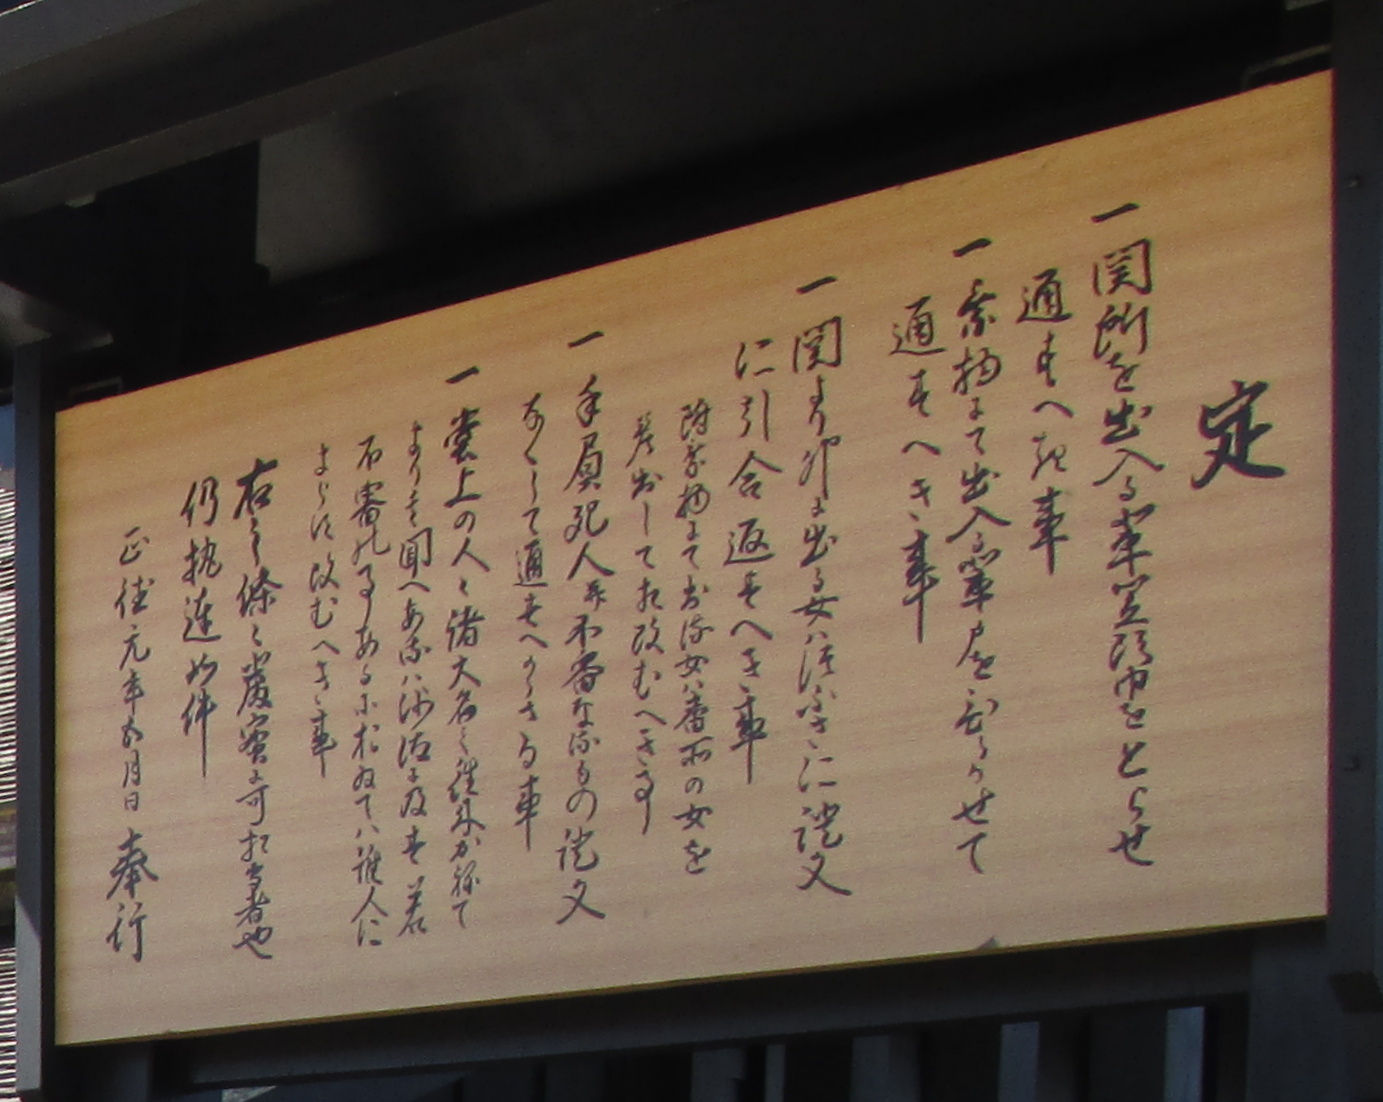 定
一 関所を出入る輩笠頭巾をとらせ
通すへき事
一 乗物にて出入る輩戸をひらかせて
通すへき事
一 関より外に出る女ハ つふさに證文
に引合返すへき事
附乗物にて出る女ハ番所の女を
差出して相改むへき事
一 手負死人并不審なるもの證文
なくして通すへからさる事
一 堂上の人々諸大名之往来かねて
よりも聞へあるハ沙汰に及す 若
不審の事あるにおゐてハ誰人に
よらす改むへき事
右之條々厳密に可相守者也
仍執達如件
正徳元年五月日 奉行